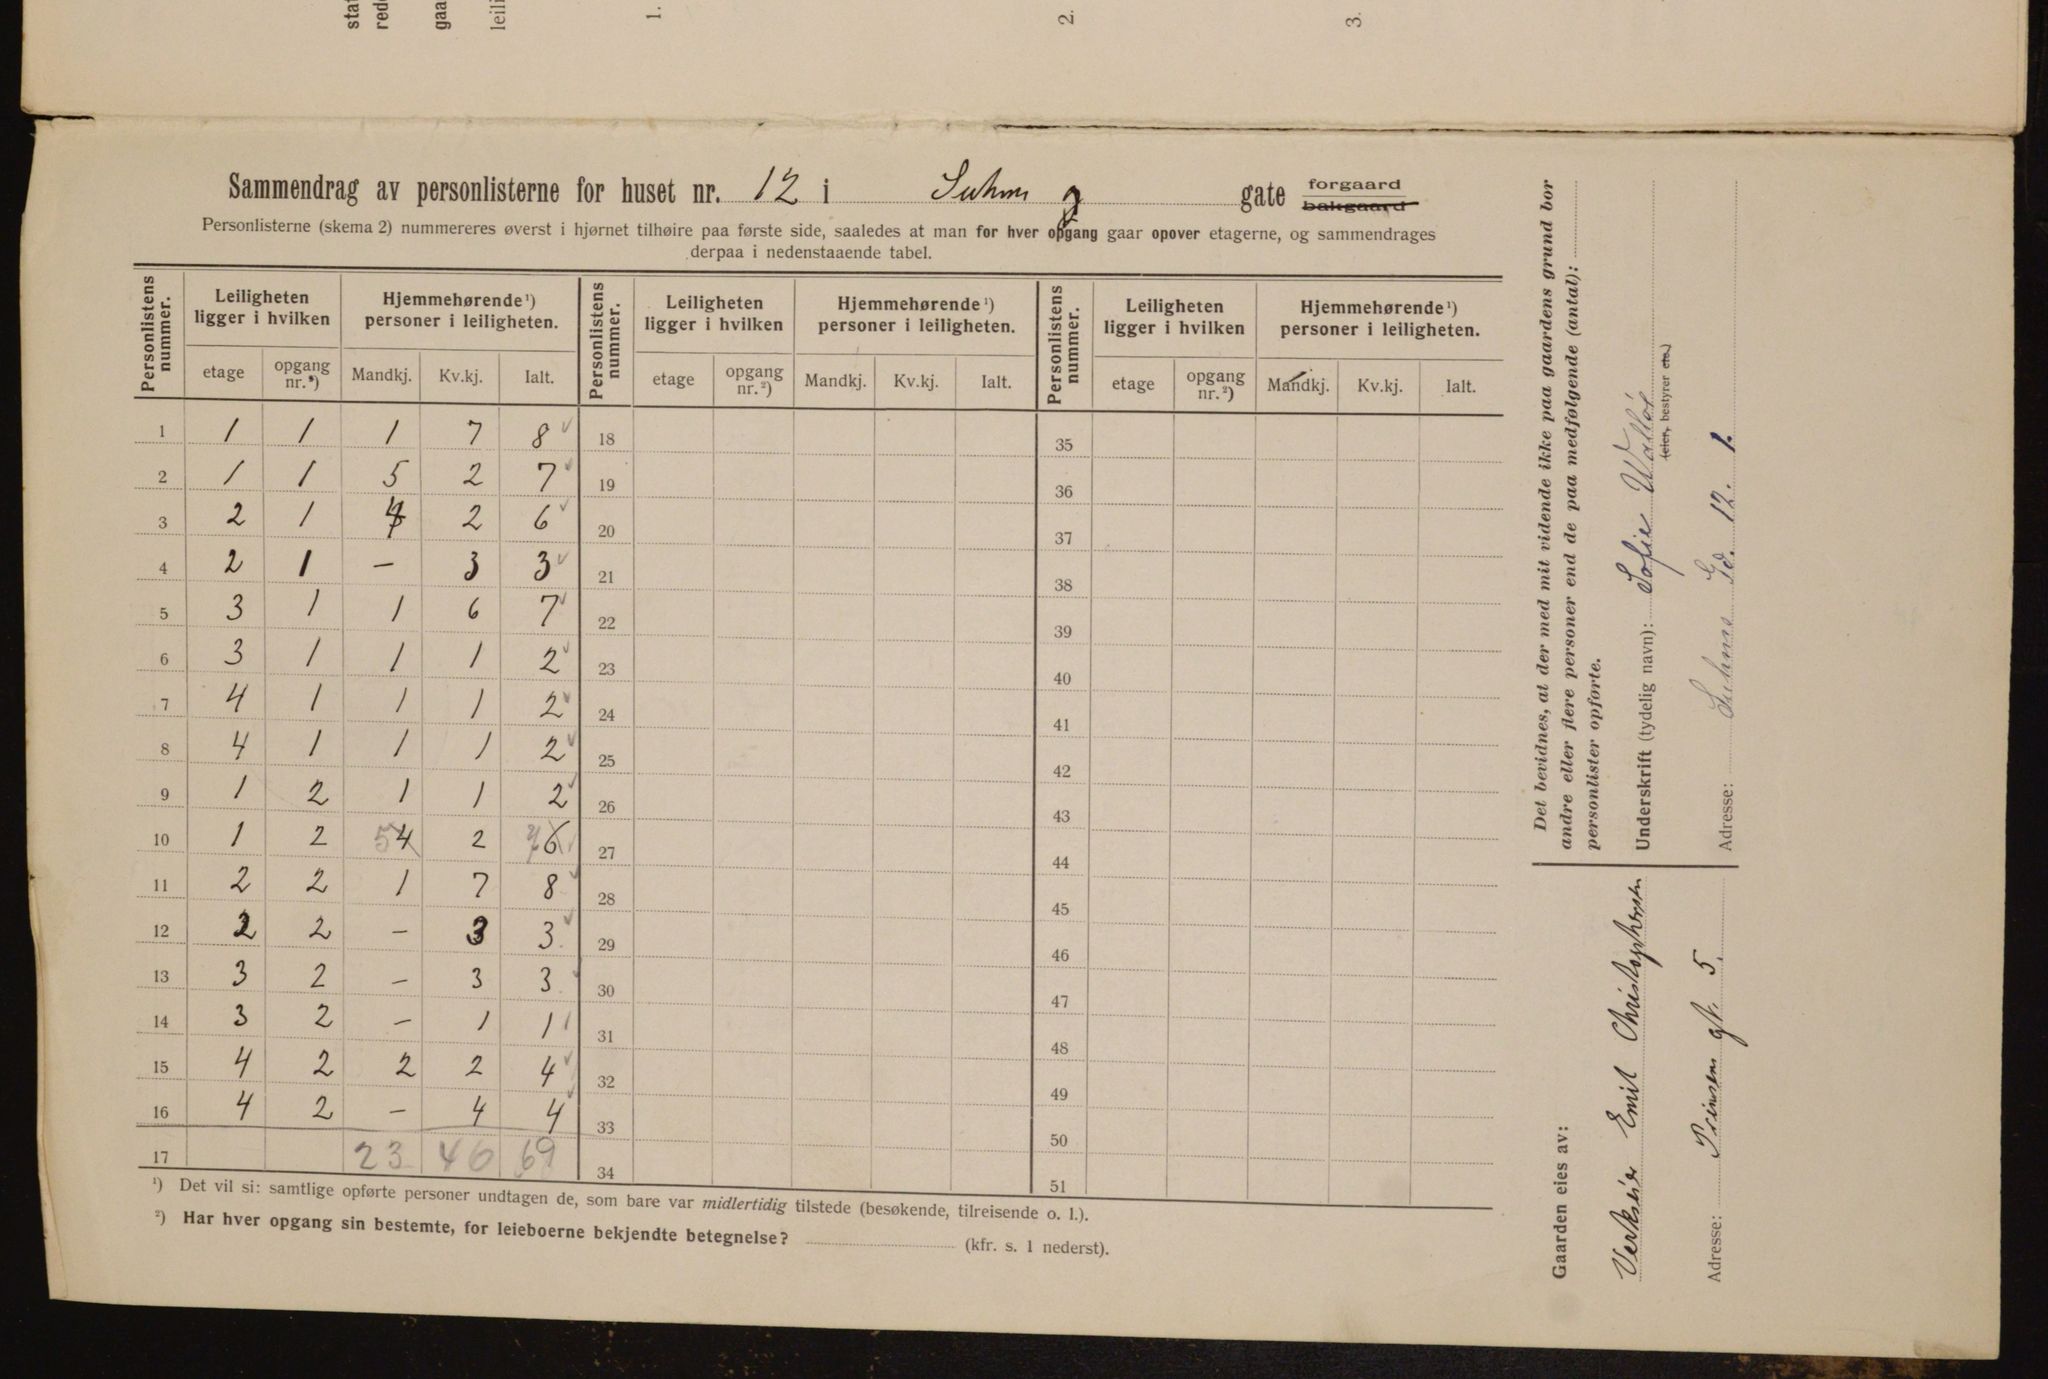 stat
rede
gaa
leili
1.
2.
3.
Sammendrag av personlisterne for huset nr. 12 i Suhms g gate forgaard bakgaard
Personlisterne (skema 2) nummereres øverst i hjørnet tilhøire paa første side, saaledes at man for hver opgang gaar opover etagerne, og sammendrages
derpaa i nedenstaaende tabel.
Personlistens nummer. Leiligheten ligger i hvilken Hjemmehørende ¹) personer i leiligheten. Personlistens nummer. Leiligheten ligger i hvilken Hjemmehørende ¹) personer i leiligheten. Personlistens nummer. Leiligheten ligger i hvilken Hjemmehørende ¹) personer i leiligheten.
etage opgang nr.²) Mandkj. Kv.kj. Ialt. etage opgang nr.²) Mandkj. Kv.kj. Ialt. etage opgang nr.²) Mandkj. Kv.kj. Ialt.
1 1 1 1 7 8 18 35
2 1 1 5 2 7 19 36
3 2 1 4 2 6 20 37
4 2 1 – 3 3 21 38
5 3 1 1 6 7 22 39
6 3 1 1 1 2 23 40
7 4 1 1 1 2 24 41
8 4 1 1 1 2 25 42
9 1 2 1 1 2 26 43
10 1 2 5 4 2 7 6 27 44
11 2 2 1 7 8 28 45
12 2 2 – 3 3 29 46
13 3 2 – 3 3 30 47
14 3 2 – 1 1 31 48
15 4 2 2 2 4 32 49
16 4 2 – 4 4 33 50
17 23 46 69 34 51
¹) Det vil si: samtlige opførte personer undtagen de, som bare var midlertidig tilstede (besøkende, tilreisende o. l.).
²) Har hver opgang sin bestemte, for leieboerne bekjendte betegnelse? (kfr. s. 1 nederst).
Det bevidnes, at der med mit vidende ikke paa gaardens grund bor
andre eller flere personer end de paa medfølgende (antal):
personlister opførte.
Underskrift (tydelig navn): Sofie
(eier, bestyrer etc.)
Adresse: Suhms Gd. 12. 1.
Gaarden eies av:
Verkseier Emil Christophersen
Adresse: Prinsens gt. 5.